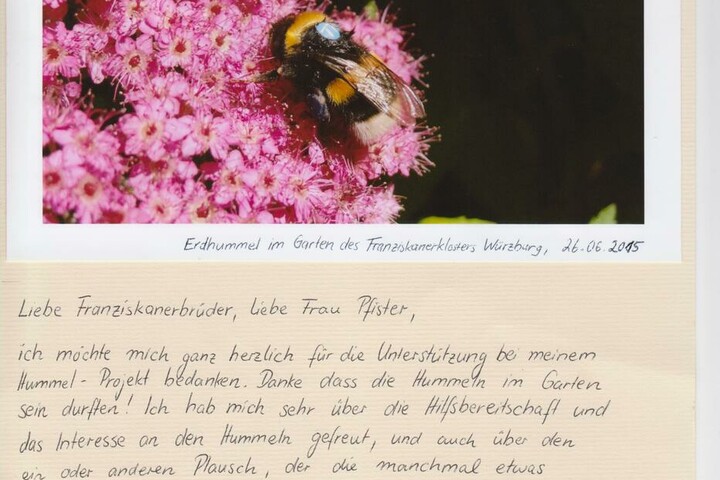 Erdhummel im Garten des Franziskanerklosters Würzburg, 26.06.2015
Liebe Franziskanerbrüder, liebe Frau Pfister,
ich möchte mich ganz herzlich für die Unterstützung bei meinem
Hummel-Projekt bedanken. Danke dass die Hummeln im Garten
sein durften! Ich hab mich sehr über die Hilfsbereitschaft und
das Interesse an den Hummeln gefreut, und auch über den
ein oder anderen Plausch, der die manchmal etwas